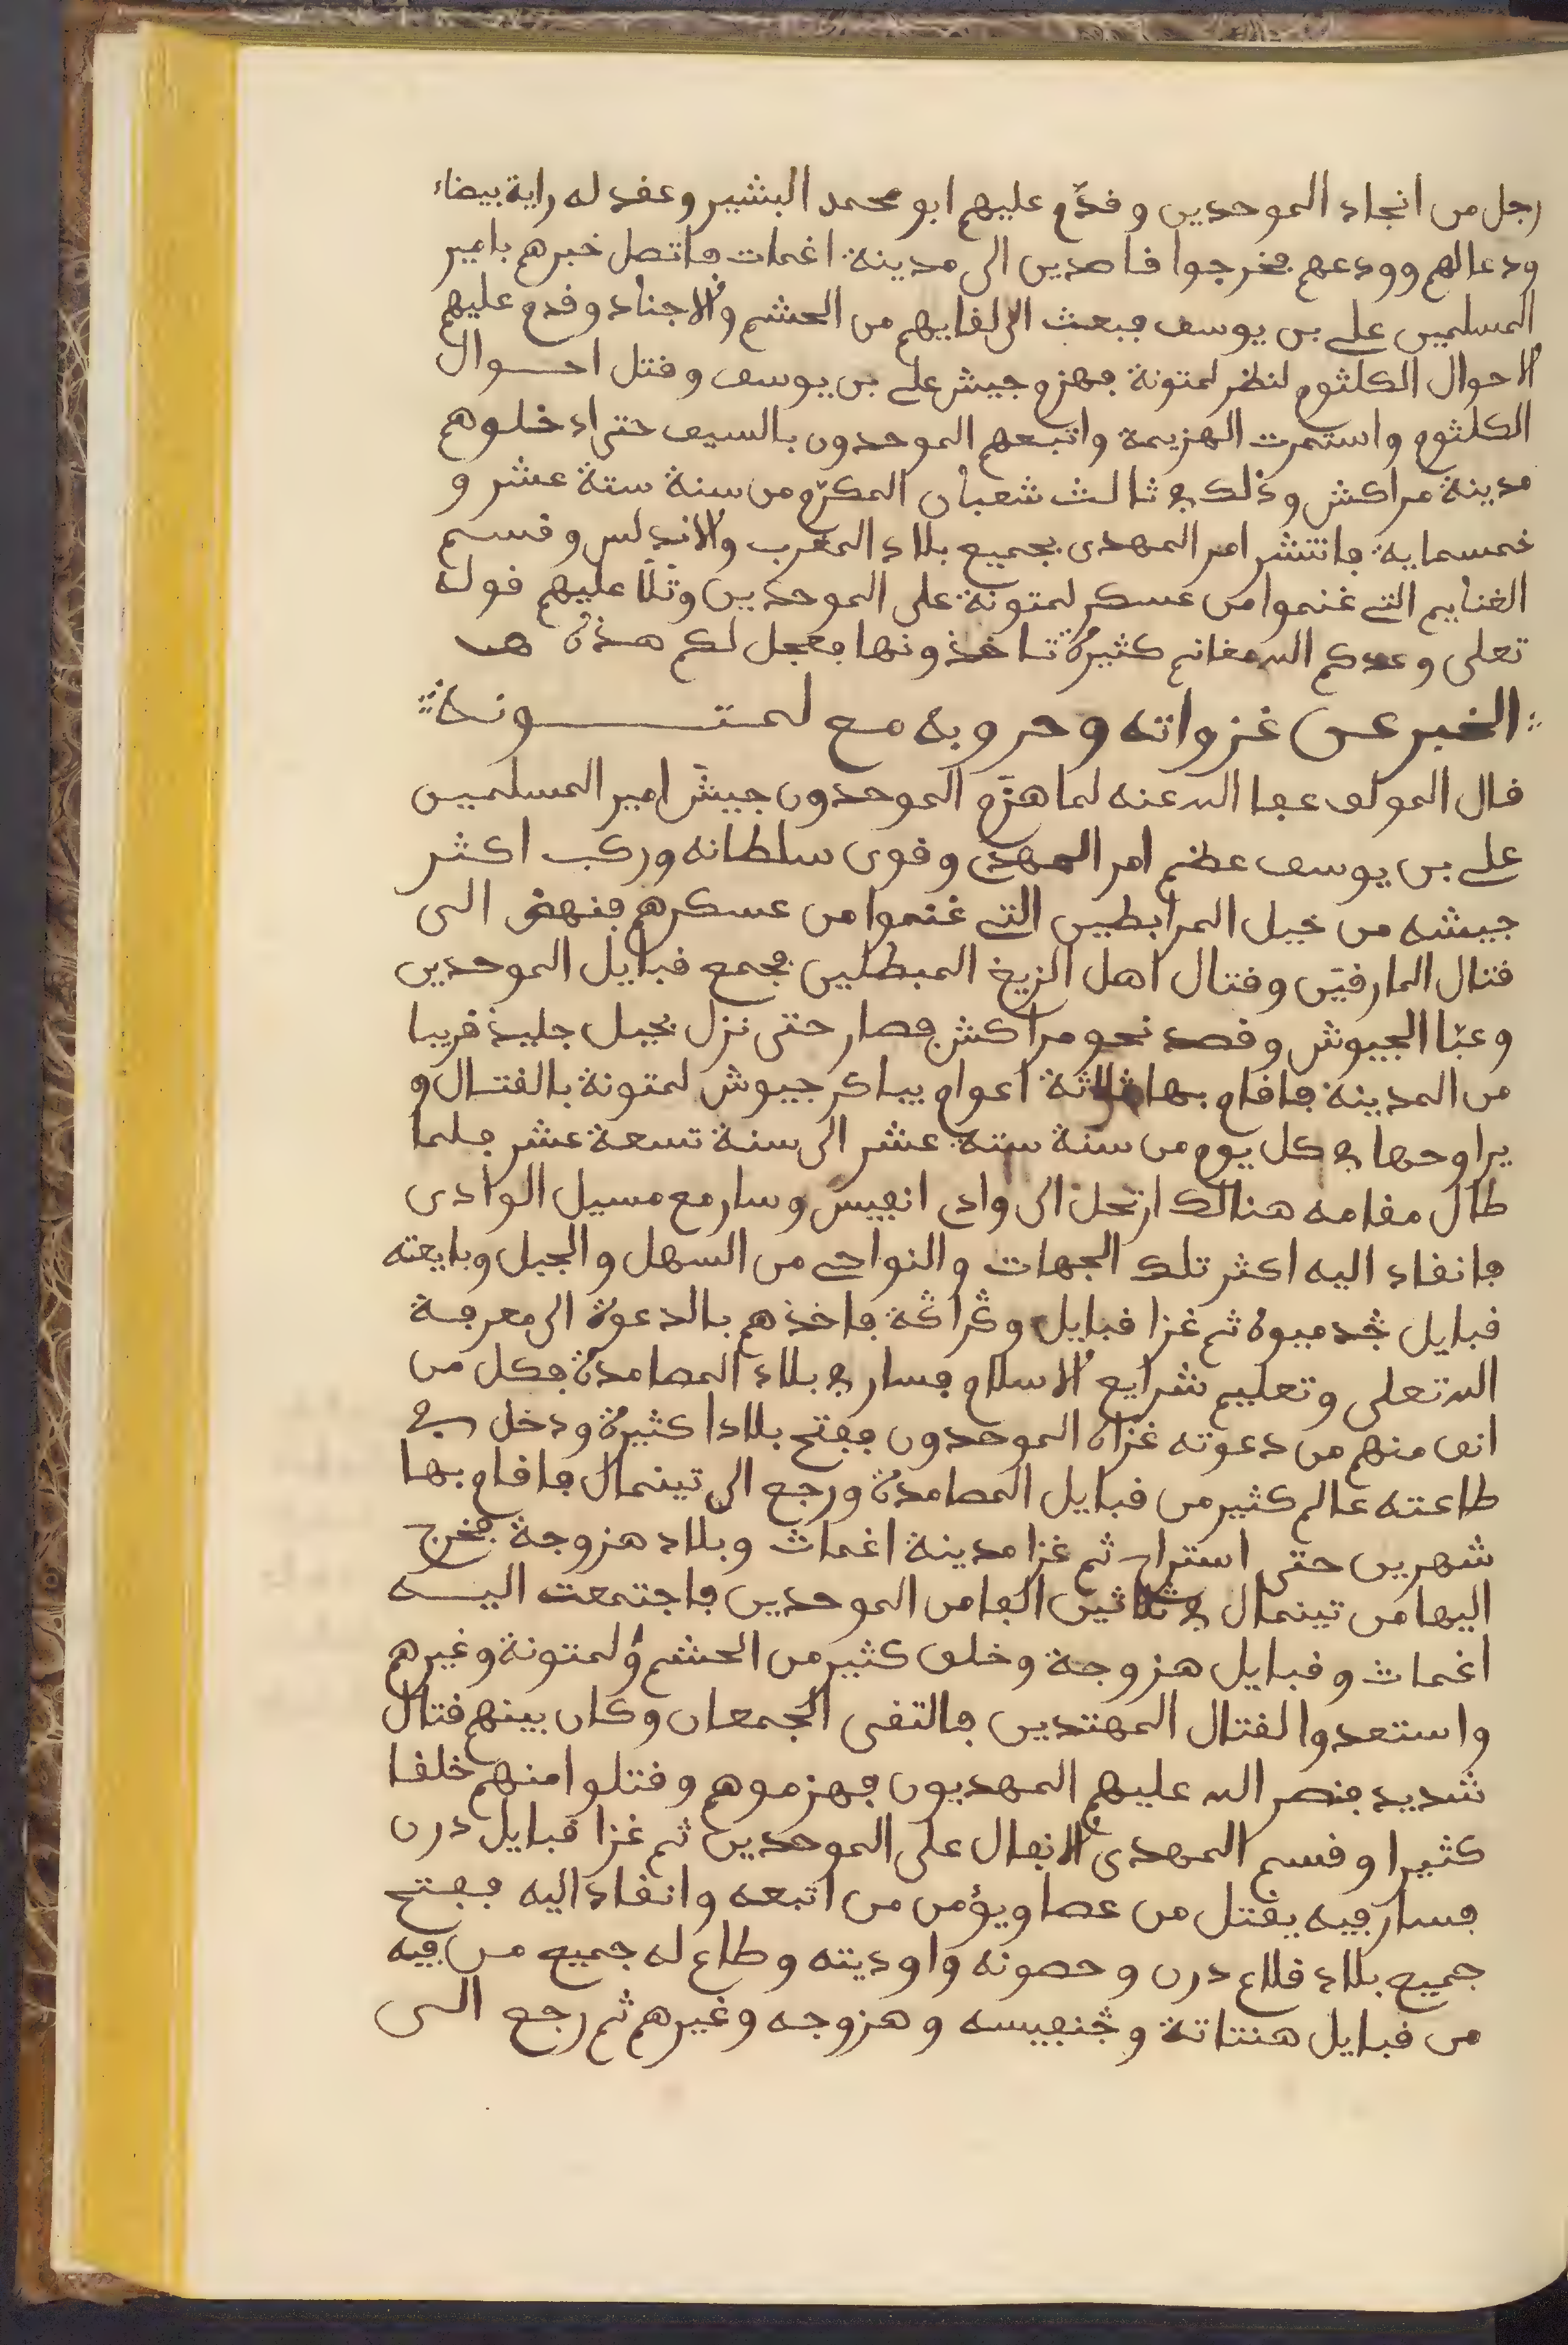 رجل من انجاد الموحدين وقدّم عليهم ابو محمد البشير وعقد له راية بيضاء
ودعا لهم وودعهم فخرجوا قاصدين الى مدينة اغمات فاتصل خبرهم بامير
المسلمين على بن يوسف فبعث الى لقايهم من الحشم والاجناد وقدم عليهم
الاحوال الكلثوم لنظر لمتونة فهزم جيش على بن يوسف وقتل احوال
الكلثوم واستمرت الهزيمة واتبعهم الموحدون بالسيف حتى ادخلوهم
مدينة مراكش وذلك في ثالث شعبان المكرّم من سنة ستة عشر و
خمسماية فانتشر امر المهدى بجميع بلاد المغرب والاندلس وقسم
الغنايم التى غنموا من عسكر لمتونة على الموحدين وتلا عليهم قوله
تعلى وعدكم الله مغانم كثيرة تاخذونها فعجل لكم هذه
الخبر عن غزواته وحروبه مع لمتونة
قال المولف عفا الله عنه لما هزّم الموحدون جيش امير المسلمين
على بن يوسف عظم امر المهدى وقوى سلطانه وركب اكثر
جيشه من خيل المرابطين التى غنموا من عسكرهم فنهض الى
قتال المارقين وقتال اهل الزيغ المبطلين فجمع قبايل الموحدين
وعبّا الجيوش وقصد نحو مراكش فصار حتى نزل بجبل جليذ قريبا
من المدينة فاقام بها ثلاثة اعوام يباكر جيوش لمتونة بالقتال و
يراوحها في كل يوم من سنة ستة عشر الى سنة تسعة عشر فلما
طال مقامه هنالك ارتحل الى وادى انفيس وسار مع مسيل الوادى
فانقاد اليه اكثر تلك الجهات والنواحى من السهل والجبل وبايعته
قبايل ݣدميوة ثم غزا قبايل وݣراݣة فاخذهم بالدعوة الى معرفة
الله تعلى وتعليم شرايع الاسلام فسار في بلاد المصامدة فكل من
انف منهم من دعوته غزاه الموحدون ففتح بلادا كثيرة ودخل في
طاعته عالم كثير من قبايل المصامدة ورجع الى تينمال فاقام بها
شهرين حتى استراح ثم غزا مدينة اغمات وبلاد هزوجة فخرج
اليها من تينمال في ثلاثين الفا من الموحدين فاجتمعت اليه
اغمات وقبايل هزوجة وخلف كثير من الحشم ولمتونة وغيرهم
واستعدوا لقتال المهتدين فالتقى الجمعان وكان بينهم قتال
شديد فنصر الله عليهم المهديون فهزموهم وقتلوا منهم خلقا
كثيرا وقسم المهدى الانفال على الموحدين ثم غزا قبايل درن
فسار فيه يقتل من عصا ويؤمن من اتبعه وانقاد اليه ففتح
جميع بلاد قلاع درن وحصونه واوديته وطاع له جميع من فيه
من قبايل هنتاتة وݣنفيسه وهزوجه وغيرهم ثم رجع الى